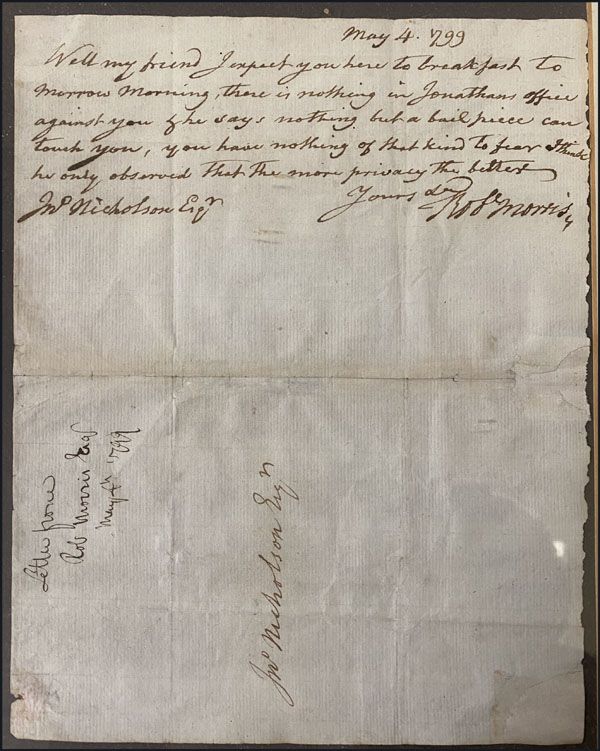 May 4. 1799
Well my friend I expect you here to breakfast to
morrow morning, there is nothing in Jonathans office
against you & he says nothing but a bail piece can
touch you, you have nothing of that kind to fear I think
he only observed that the more privacy the better
Yours &c
Jno Nicholson Esqr Robt Morris
Letter from
Rob Morris Esqr
May 4th 1799
Jno Nicholson Esqr